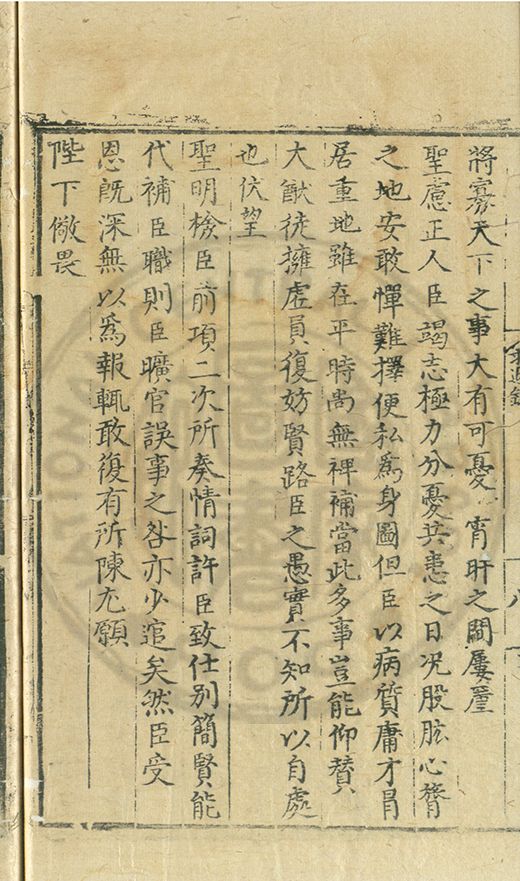 將寡天下之事大有可憂宵旰之間屢廑
聖慮正人臣竭志極力分憂共患之日况股肱心膂
之地安敢憚難擇便私為身圖但臣以病質庸才冐
居重地雖在平時尚無裨補當此多事豈能仰賛
大猷徒擁虛員復妨賢路臣之愚實不知所以自處
也伏望
聖明檢臣前項二次所奏情詞許臣致仕别簡賢能
代補臣職則臣曠官誤事之咎亦少逭矣然臣受
恩既深無以爲報輒敢復有所陳尤願
陛下儆畏